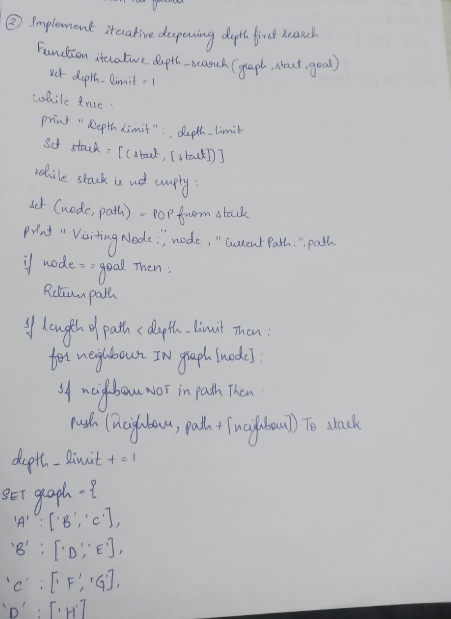 ② Implement iterative deepening depth first search:
Function iterative depth-search (graph, start, goal):
set depth-limit = 1
while true:
print "Depth Limit":, depth-limit
Set stack = [(start, [start])]
while stack is not empty:
set (node, path) = POP from stack
print "Visiting Node:", node, "Current Path:", path
if node == goal Then:
Return path
If length of path < depth-limit Then:
for neighbour IN graph [node]:
If neighbour NOT in path Then:
push (neighbour, path + [neighbour]) To stack
depth-limit += 1
SET graph = {
'A' : ['B', 'C'],
'B' : ['D', 'E'],
'C' : ['F', 'G'],
'D' : ['H']